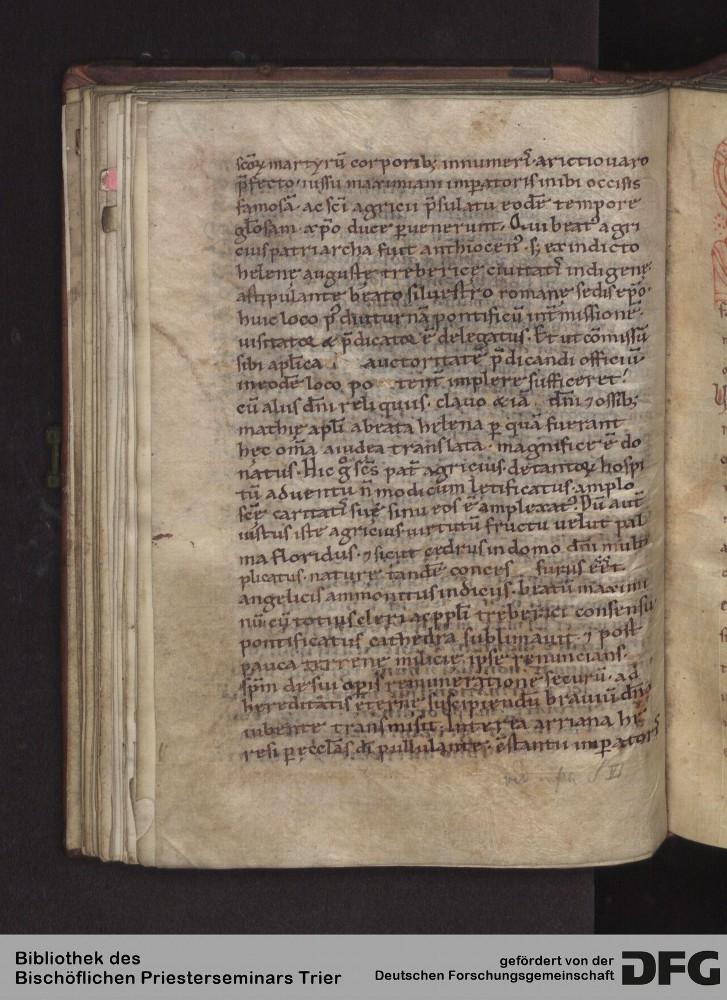 scōꝝ martyrū corporib; innumeri᷒ a rictiouaro
p̄fecto · iussu maximiani imꝑatoris inibi occisis
famosā · ac sci᷒ agricii p̄sulatu eodē tempore
gl̄osam · xp̄o duce ꝑuenerunt · Qui beat᷒ agri
cius patriarcha fuit anthiocen᷒ · s; ex indicto
helene auguste treberice ciuitati᷒ indigene ·
astipulante beato siluestro romane sedis ep̄o ·
huic loco p᷒ diuturnā pontificū int̄missione ·
uisitator & p̄dicator ē delegatus · Et ut cōmissū
sibi aplica auctoritate p̄dicandi officiū
in eodē loco po tent᷒ implere sufficeret ·
cū aliis dn̄i reliquiis · clauo & iā dn̄i ⁊ ossib;
mathie apl̄i a beata helena ꝑ quā fuerant
hec om̄a a iudea translata · magnifice ē do
natus · Hic g᷒ sc̄s pat᷒ agricius · de tantoꝝ hospi
tū aduentu n̄ modicum letificatus · amplo
scē caritati᷒ sue sinu eos ē amplexat᷒ · Dū aut̄
iustus iste agricius · uirtutū fructu uelut pal
ma floridus · ⁊ sicut cedrus in domo dn̄i multi
plicatus · nature tandē conces surus eēt
angelicis ammonitus indiciis · beatū maximi
nū totius cleri ac ppl̄i treberici consensu
pontificatus cathedra sublimauit · ⁊ post
pauca terrene milicie ipse renuncians ·
sp̄m de sui oꝑis remuneratione securū · ad
hereditatis eterne suscipiendū brauiū dn̄o
iubente transmisit · Interea arriana he
resi ꝑ ecclās di᷒ pullulante · cstantii imꝑatoris
Bibliothek des
Bischöflichen Priesterseminars Trier
gefördert von der
Deutschen Forschungsgemeinschaft
DFG